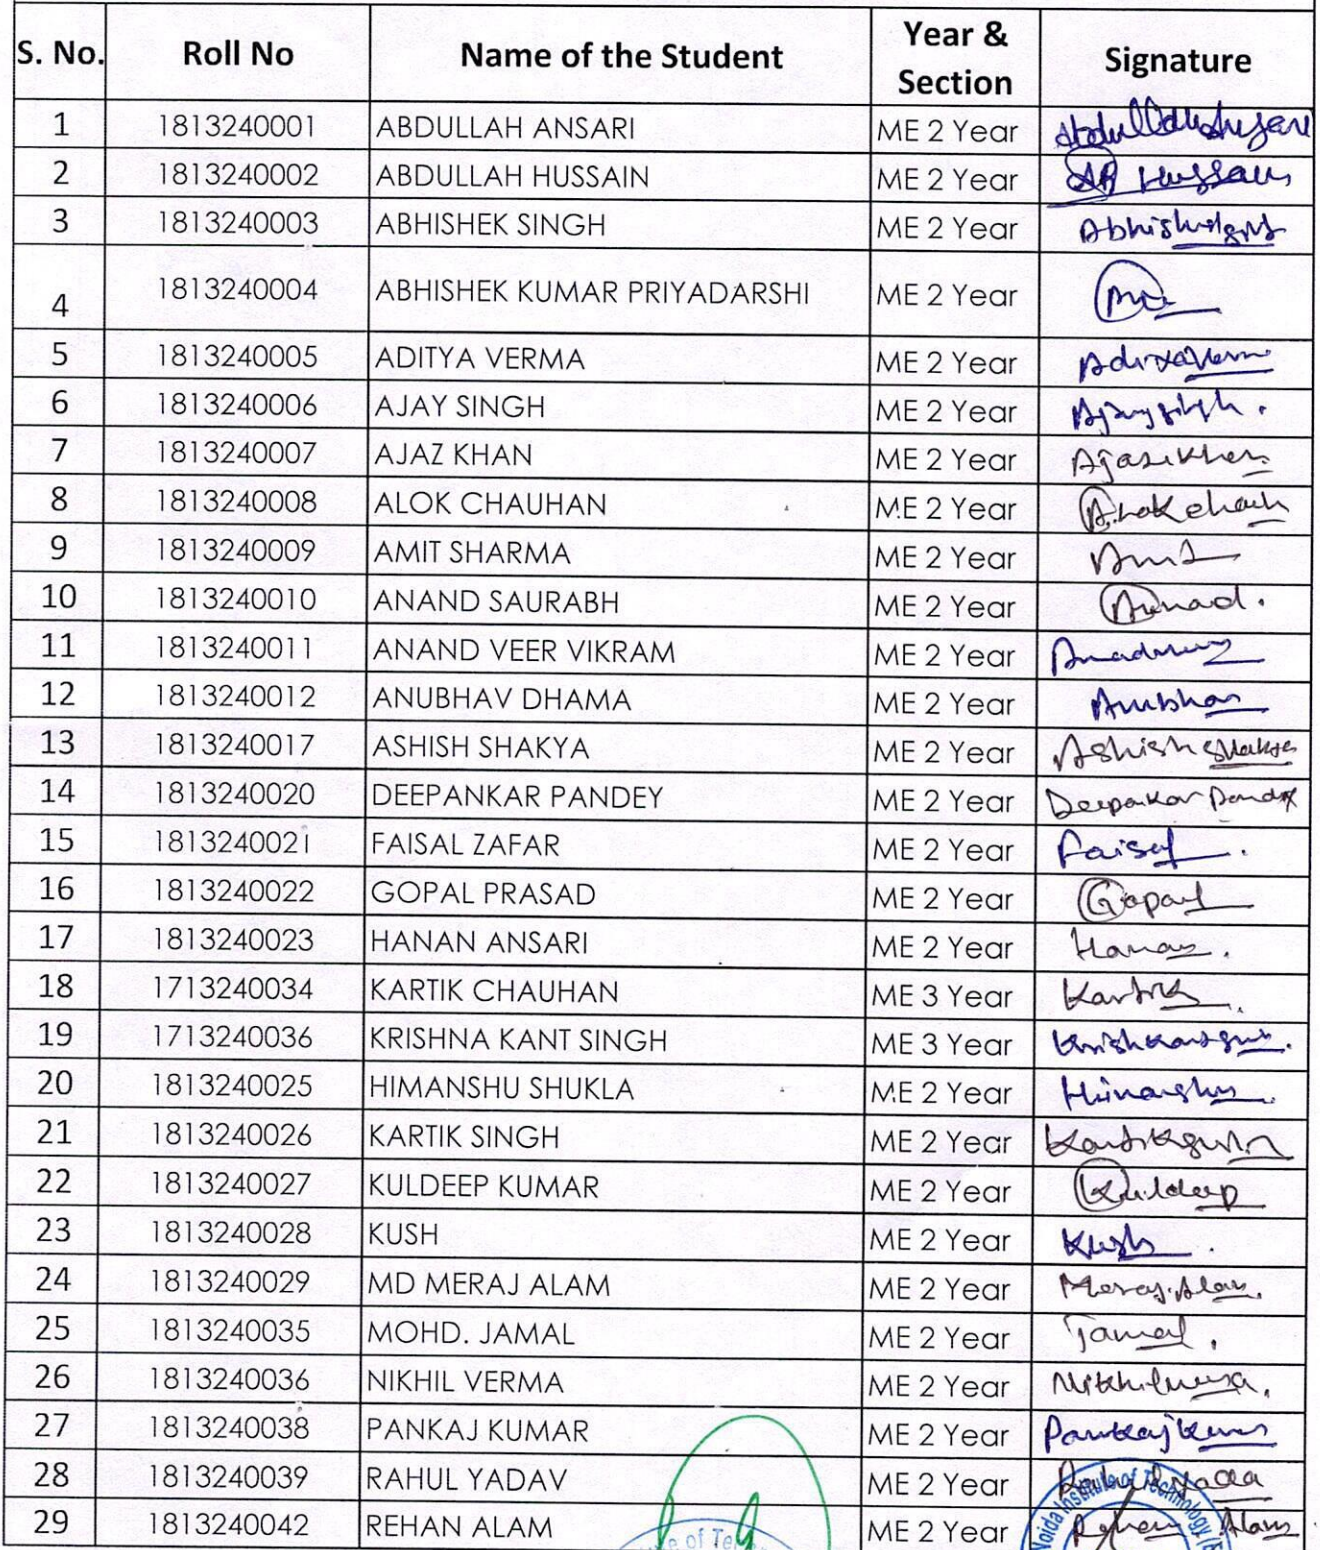 S. No. Roll No Name of the Student Year & Section Signature
1 1813240001 ABDULLAH ANSARI ME 2 Year Abdullah Ansari
2 1813240002 ABDULLAH HUSSAIN ME 2 Year AB Hussain
3 1813240003 ABHISHEK SINGH ME 2 Year
4 1813240004 ABHISHEK KUMAR PRIYADARSHI ME 2 Year
5 1813240005 ADITYA VERMA ME 2 Year
6 1813240006 AJAY SINGH ME 2 Year Ajay Singh.
7 1813240007 AJAZ KHAN ME 2 Year Ajaz Khan
8 1813240008 ALOK CHAUHAN ME 2 Year Alok Chauh
9 1813240009 AMIT SHARMA ME 2 Year Amit
10 1813240010 ANAND SAURABH ME 2 Year
11 1813240011 ANAND VEER VIKRAM ME 2 Year
12 1813240012 ANUBHAV DHAMA ME 2 Year Anubhav
13 1813240017 ASHISH SHAKYA ME 2 Year Ashish Shakya
14 1813240020 DEEPANKAR PANDEY ME 2 Year Deepankar Pandey
15 1813240021 FAISAL ZAFAR ME 2 Year Faisal.
16 1813240022 GOPAL PRASAD ME 2 Year Gopal
17 1813240023 HANAN ANSARI ME 2 Year Hanan.
18 1713240034 KARTIK CHAUHAN ME 3 Year Kartik
19 1713240036 KRISHNA KANT SINGH ME 3 Year
20 1813240025 HIMANSHU SHUKLA ME 2 Year Himanshu
21 1813240026 KARTIK SINGH ME 2 Year Kartik Singh
22 1813240027 KULDEEP KUMAR ME 2 Year Kuldeep
23 1813240028 KUSH ME 2 Year Kush.
24 1813240029 MD MERAJ ALAM ME 2 Year Meraj Alam.
25 1813240035 MOHD. JAMAL ME 2 Year Jamal.
26 1813240036 NIKHIL VERMA ME 2 Year Nikhil Verma.
27 1813240038 PANKAJ KUMAR ME 2 Year Pankaj Kumar
28 1813240039 RAHUL YADAV ME 2 Year
29 1813240042 REHAN ALAM ME 2 Year Rehan Alam
Noida Institute of Technology